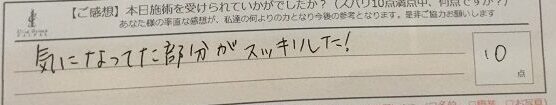 【ご感想】本日施術を受けていかがでしたか？（ズバリ10点満点中、何点ですか？）
あなた様の率直な感想が、私達の何よりの力となり今後の参考となります。是非ご協力お願いします
気になってた部分がスッキリした！
10
点